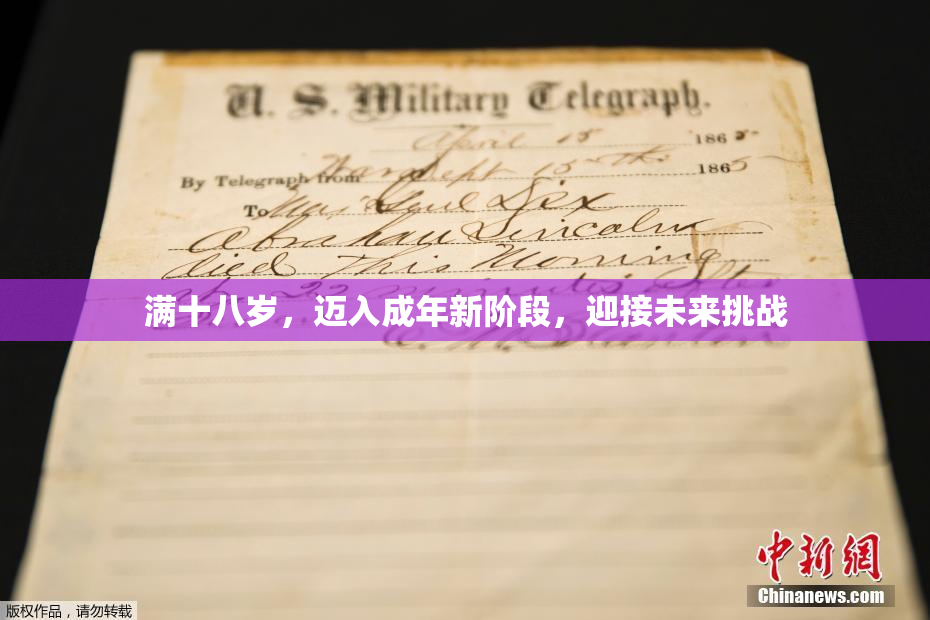 U. S. Military Telegraph.
April 15 1865
By Telegraph from War Dept 15th 1865
To Maj Genl Dix
Abraham Lincoln
died This Morning
at 22 minutes after
满十八岁，迈入成年新阶段，迎接未来挑战
E. M. Stanton
中新网
Chinanews.com
版权作品，请勿转载